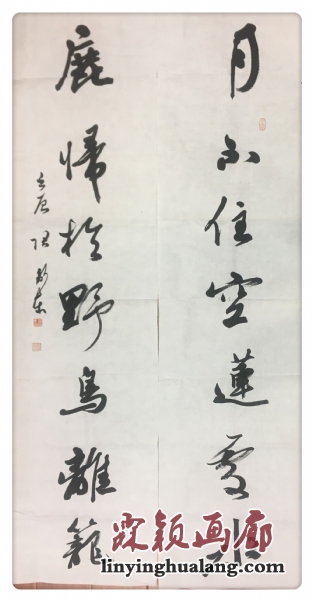 月不住空蓮處水
鹿歸於野鳥離籠
壬辰
霖颖画廊
linyinghualang.com